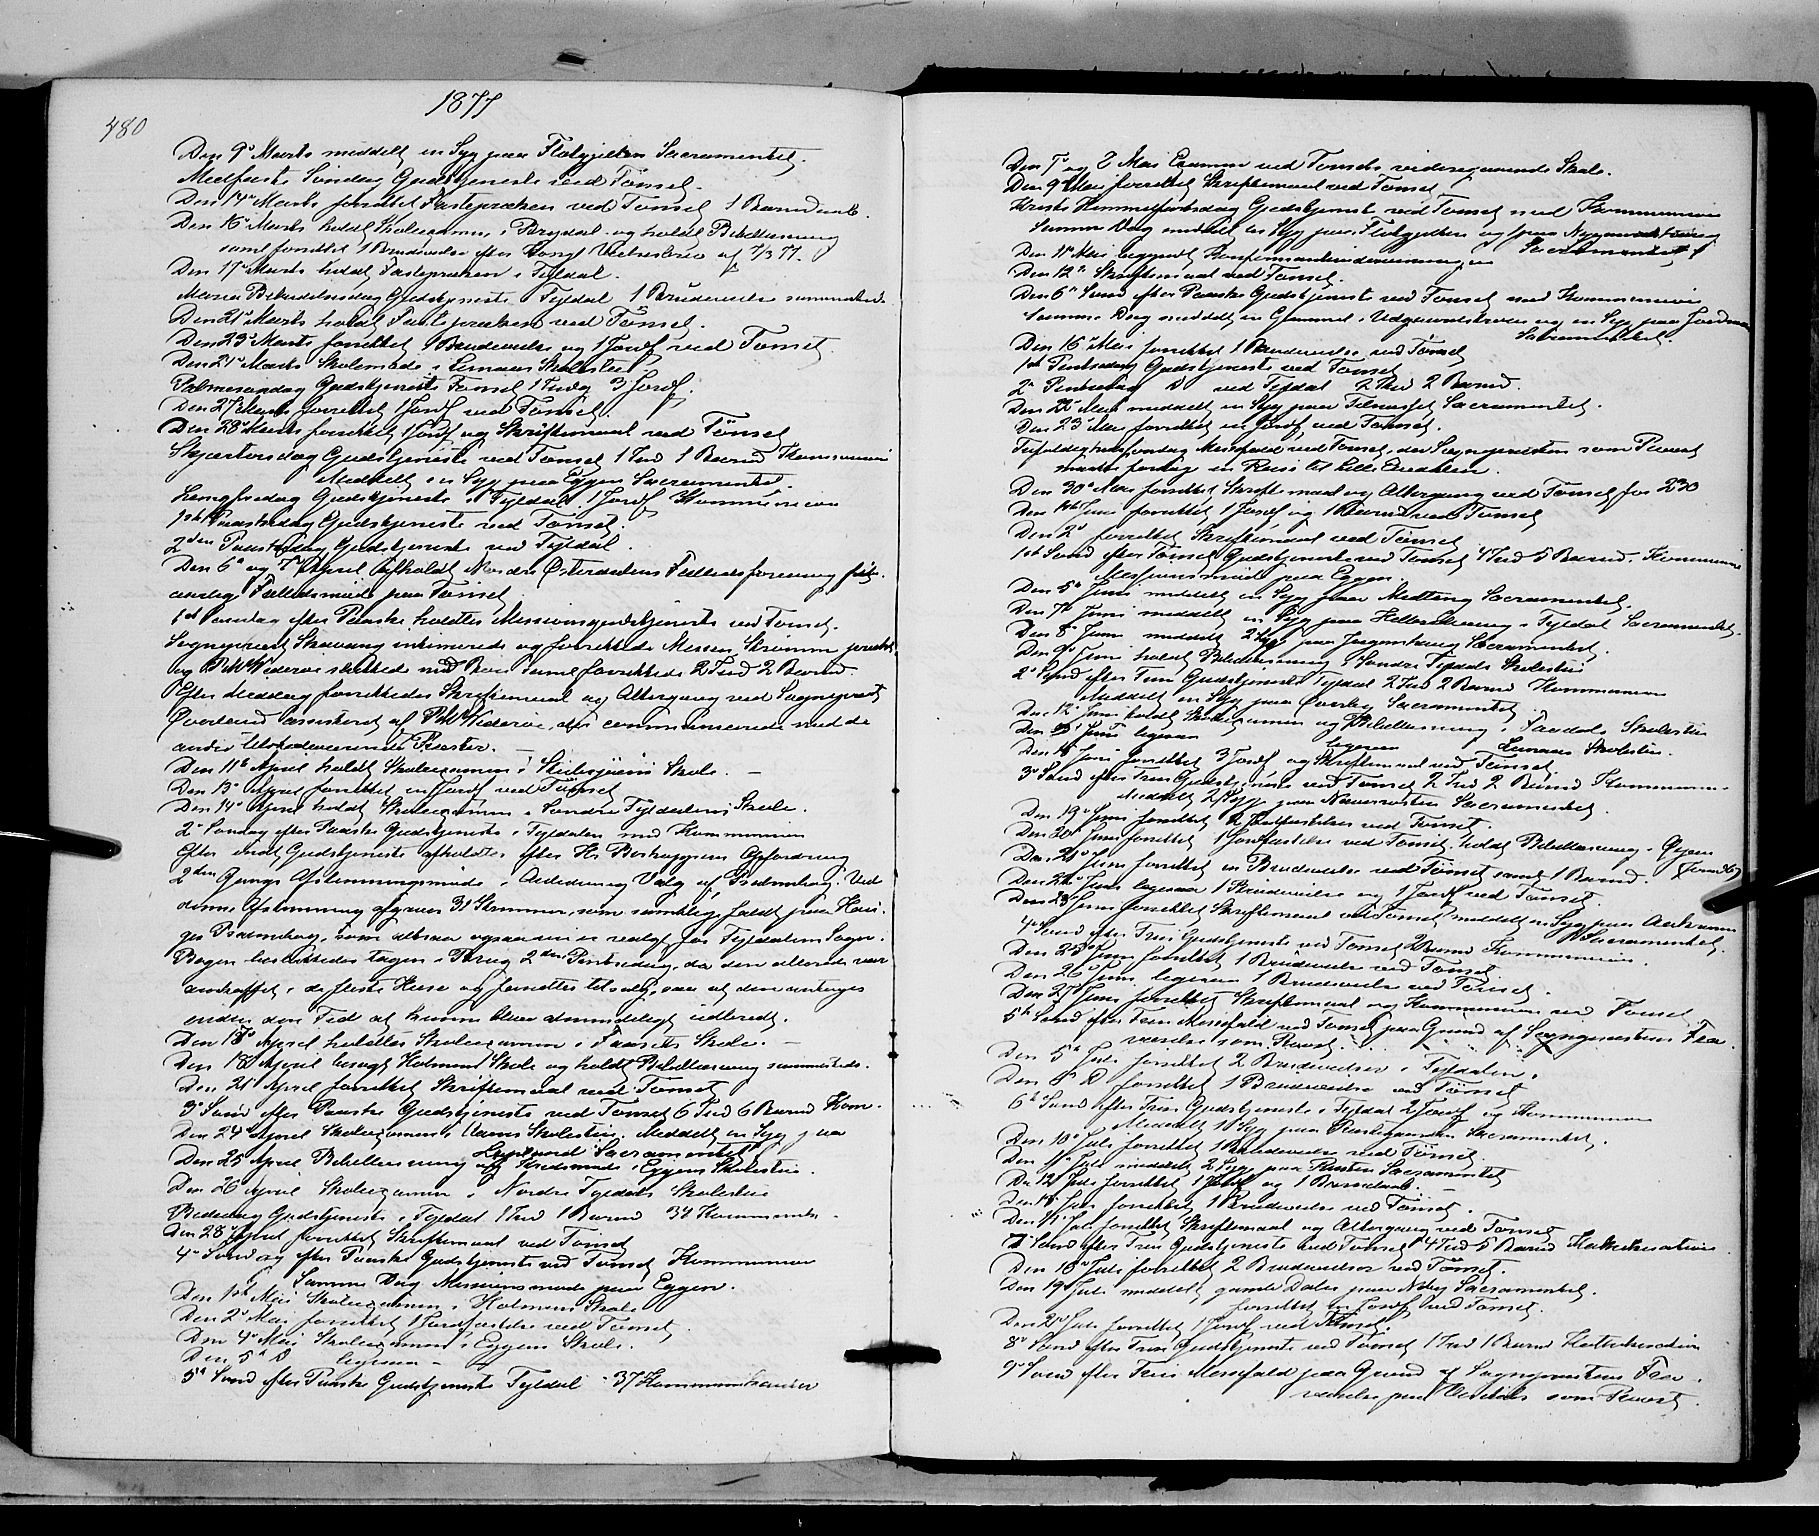 480
1877
Den 9de Marts meddelt en Syg paa Flatgjelten Sacramentet.
Midfaste Søndag Gudstjeneste ved Tønset.
Den 14de Marts forrettet Fasteprædken ved Tønset 1 Barnedaab.
Den 16de Marts holdt Skoleexamen i Brydal og holdt Bibellæsning
samt forrettet 1 Brudevielse efter Kongl Vielsesbrev af 7/3 77.
Den 17de Marts holdt Fasteprædken i Tyldal.
Mariæ Bebudelsesdag Gudstjeneste Tyldal 1 Brudevielse sammesteds.
Den 21de Marts holdt Fasteprædken ved Tønset.
Den 23de Marts forrettet 1 Brudevielse og 1 Jordf ved Tønset.
Den 24de Marts Skolemøde i Skolestue
Palmesøndag Gudstjeneste Tønset 1 Introd 3 Jordf.
Den 27de Marts forrettet 1 Jordf ved Tønset.
Den 28de Marts forrettet 1 Jordf og Skriftemaal ved Tønset
Skjærtorsdag Gudstjeneste ved Tønset 1 Ind 1 Barnd Kommunion
Meddelt en Syg paa Eggen Sacramentet.
Langfredag Gudstjeneste i Tyldal 1 Jordf Kommunion
1ste Paaskedag Gudstjeneste ved Tønset.
2den Paaskedag Gudstjeneste ved Tyldal.
Den 6te og 7de April afholdt Nordre Østerdalens Fællesforening
Fællesmøde paa Tønset.
1ste Søndag efter Paaske holdtes Missionsgudstjeneste ved Tønset.
Sognepræst intimerede og forrettede Messen,
og Widerøe sluttede med Bøn samt forrettede 2 Ind 2 Barnd.
Efter Middag forrettedes Skriftemaal og Altergang ved Sognepræst
Øverland assisteret af Widerøe, der communicerede med de
andre tilstedeværende Præster.
Den 11te April holdt Skoleexamen i Skole.
Den 13de April forrettet en Jordf ved Tønset
Den 14de April holdt Skoleexamen i Søndre Tyldalens Skole.
2den Søndag efter Paaske Gudstjeneste i Tyldalen med Kommunion
Efter endt Gudstjeneste afholdtes efter Hr Biskoppens Opfordring
2den Gangs Afstemningsmøde i Anledning Valg af Psalmebog. Ved
denne Afstemning afgaves 31 Stemmer, som samtlige faldt paa Hau-
ges Psalmebog, som altsaa ogsaa nu er valgt for Tyldalens Sogn.
Bogen besluttedes tagen i Brug 2den Pintsedag, da den allerede var
anskaffet i de fleste Huse og forventes tilsalg, saa at den antages
inden den Tid at kunne blive almindeligt udbredt.
Den 17de April holdtes Skoleexamen i Skole.
Den 18de April besøgt Holmens Skole og holdt Bibellæsning sammesteds.
Den 21de April forrettet Skriftemaal ved Tønset
3die Sønd efter Paaske Gudstjeneste ved Tønset 6 Ind 6 Barnd Kom.
Den 24de April Skoleexamen i Skolestue. Meddelt en Syg paa
Sacramentet
Den 25 April Bibellæsning og Kredsmøde i Eggens Skolestue.
Den 26 April Skoleexamen i Nordre Tyldals Skolestue
Bededag Gudstjeneste i Tyldal 1 Ind 1 Barnd 34 Kommunik.
Den 28de April forrettet Skriftemaal ved Tønset
4de Søndag efter Paaske Gudstjeneste ved Tønset Kommunion
Samme Dag Missionsmøde paa Eggen.
Den 1ste Mai Skoleexamen i Holmens Skole
Den 2de Mai forrettet 1 Jordfæstelse ved Tønset.
Den 4de Mai Skoleexamen i Eggens Skole.
Den 5te D ligesaa
5te Sønd efter Paaske Gudstjeneste Tyldal 37 Kommunikanter
Den 7de og 8 Mai Examen ved Tønsets videregaaende Skole.
Den 9de Mai forrettet Skriftemaal ved Tønset
Kristi Himmelfartsdag Gudstjeneste ved Tønset med Kommunion
Samme Dag meddelt en Syg paa Flatgjelten og 1 paa
Sacramentet
Den 11te Mai begyndt Konfirmantundervisningen
Den 12te Skriftemaal ved Tønset.
Den 6te Sønd efter Paaske Gudstjeneste ved Tønset med Kommunion
Samme Dag meddelt en Gammel i og en Syg paa
Sacramentet.
Den 16de Mai forrettet 1 Brudevielse ved Tønset
1ste Pintsedag Gudstjeneste ved Tønset
2den Pintsedag D ved Tyldal 2 Ind 2 Barnd.
Den 22de Mai meddelt en Syg paa Sacramentet.
Den 23de Mai forrettet en Jordf ved Tønset.
Trefoldighedssøndag Messefald ved Tønset, da Sognepræsten som Provst
maatte foretage en Reise til Lille Elvedalen.
Den 30te Mai forrettet Skriftemaal og Altergang ved Tønset for 230
Den 1ste Juni forrettet 1 Jordf og 1 Barnd ved Tønset
Den 2de forrettet Skriftemaal ved Tønset
1ste Sønd efter Gudstjeneste ved Tønset 4 Ind 5 Barnd. Kommunion
Missionsmøde paa Eggen.
Den 5te Juni meddelt en Syg paa Sacramentet.
Den 7de Juni meddelt en Syg paa i Tyldal Sacramentet.
Den 8de Juni meddelt 2 Syge paa Sacramentet.
Den 9de Juni holdt Bibellæsning i Søndre Tyldals Skolestue
2den Sønd efter Trin Gudstjeneste Tyldal 2 Ind 2 Barnd Kommunion
Meddelt en Syg paa Sacramentet.
Den 12te Juni holdt Skoleexamen og Bibellæsning i Skolestue
Den 13de Juni ligesaa ligesaa Skolestue.
Den 15de Juni forrettet 3 Jordf og Skriftemaal ved Tønset
3die Sønd efter Trin Gudstjeneste ved Tønset 2 Ind 2 Barnd Kommunion.
Meddelt 2 Syge paa Sacramentet.
Den 19de Juni forrettet 2 Jordfæstelser ved Tønset.
Den 20de Juni forrettet 1 Jordfæstelse ved Tønset. holdt Bibellæsning i
Den 21de Juni forrettet en Brudevielse ved Tønset samt 1 Barnd.
Den 22de Juni ligesaa 1 Brudevielse og 1 Jordf ved Tønset.
Den 23de Juni forrettet Skriftemaal ved Tønset meddelt en Syg paa
Sacramentet.
4de Sønd efter Trin Gudstjeneste ved Tønset 2 Barnd Kommunion.
Den 25de Juni forrettet 1 Brudevielse ved Tønset.
Den 26de Juni ligesaa 1 Brudevielse ved Tønset.
Den 27de Juni forrettet Skriftemaal og Kommunion ved Tønset
5te Sønd efter Trin Messefald ved Tønset paa Grund af Sognepræstens Fra-
værelse som Provst.
Den 5te Juli forrettet 2 Brudevielser i Tyldalen.
Den 6te D forrettet 1 Brudevielse ved Tønset
6te Sønd efter Trin Gudstjeneste i Tyldal 2 Jordf og Kommunion
Meddelt 1 Syg paa Sacramentet.
Den 10de Juli forrettet 1 Brudevielse ved Tønset.
Den 11te Juli meddelt 2 Syge paa Sacramentet
Den 12te Juli forrettet 1 Jordf og 1 Barnedaab.
Den 13de Juli forrettet 1 Brudevielse ved Tønset.
Den 14de Juli forrettet Skriftemaal og Altergang ved Tønset
7de Sønd efter Trin Gudstjeneste ved Tønset 4 Ind 5 Barnd Katekisation
Den 18de Juli forrettet 2 Brudevielser ved Tønset.
Den 19de Juli meddelt gamle paa Sacramentet.
forrettet en Jordf ved Tønset.
Den 20de Juli forrettet 1 Jordf ved Tønset.
8de Sønd efter Trin Gudstjeneste ved Tønset 1 Ind 1 Barnd Katekisation
9de Sønd efter Trin Messefald paa Grund af Sognepræstens Fra-
værelse paa Visitats som Provst.